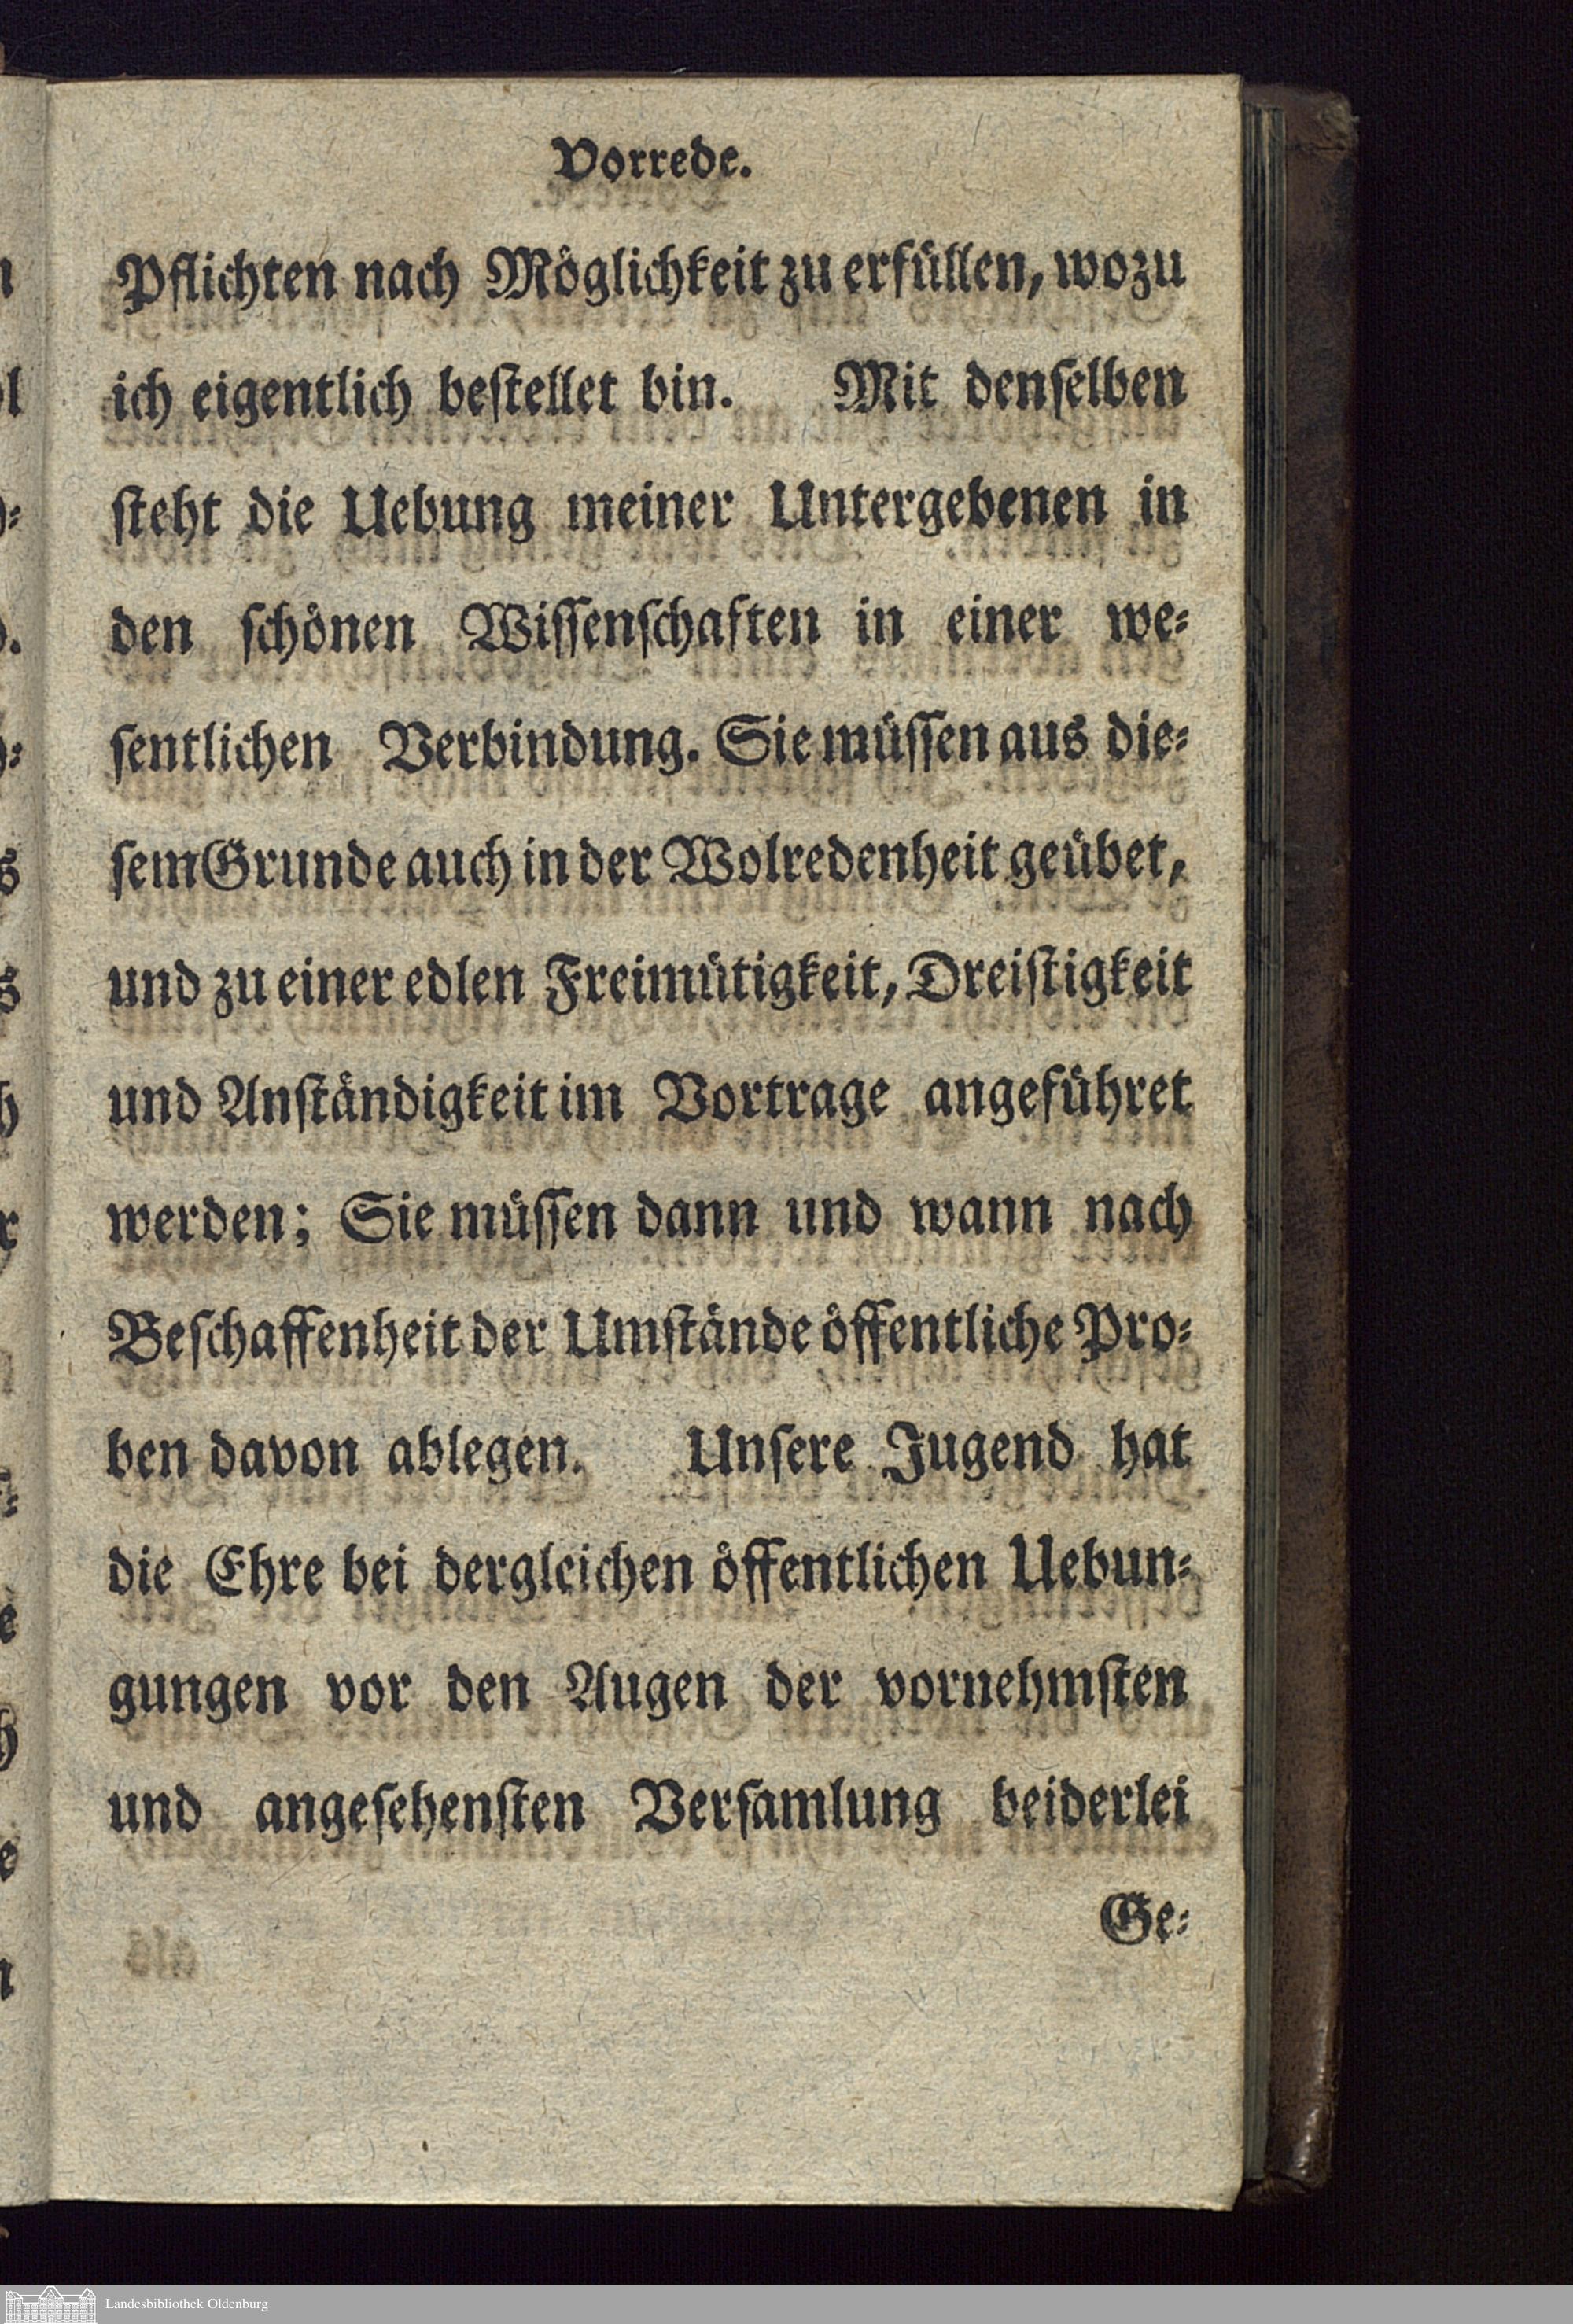 Vorrede.
Pflichten nach Möglichkeit zu erfüllen, wozu
ich eigentlich beſtellet bin. Mit denſelben
ſteht die Uebung meiner Untergebenen in
den ſchönen Wiſſenſchaften in einer we⸗
ſentlichen Verbindung. Sie müſſen aus die⸗
ſem Grunde auch in der Wolredenheit geübet,
und zu einer edlen Freimütigkeit, Dreiſtigkeit
und Anſtändigkeit im Vortrage angeführet
werden; Sie müſſen dann und wann nach
Beſchaffenheit der Umſtände öffentliche Pro⸗
ben davon ablegen. Unſere Jugend hat
die Ehre bei dergleichen öffentlichen Uebun⸗
gungen vor den Augen der vornehmſten
und angeſehenſten Verſamlung beiderlei
Ge⸗
Landesbibliothek Oldenburg